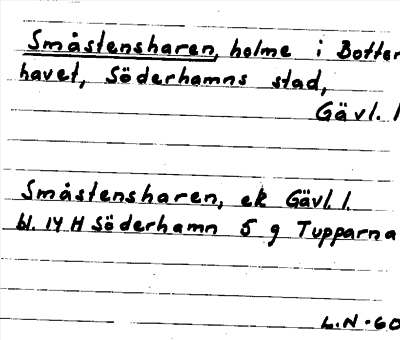 Småstensharen, holme i Botten
havet, Söderhamns stad,
Gävl. l
Småstensharen, ek Gävl. l.
bl. 14 H Söderhamn 5 g Tupparna
L.N. 60